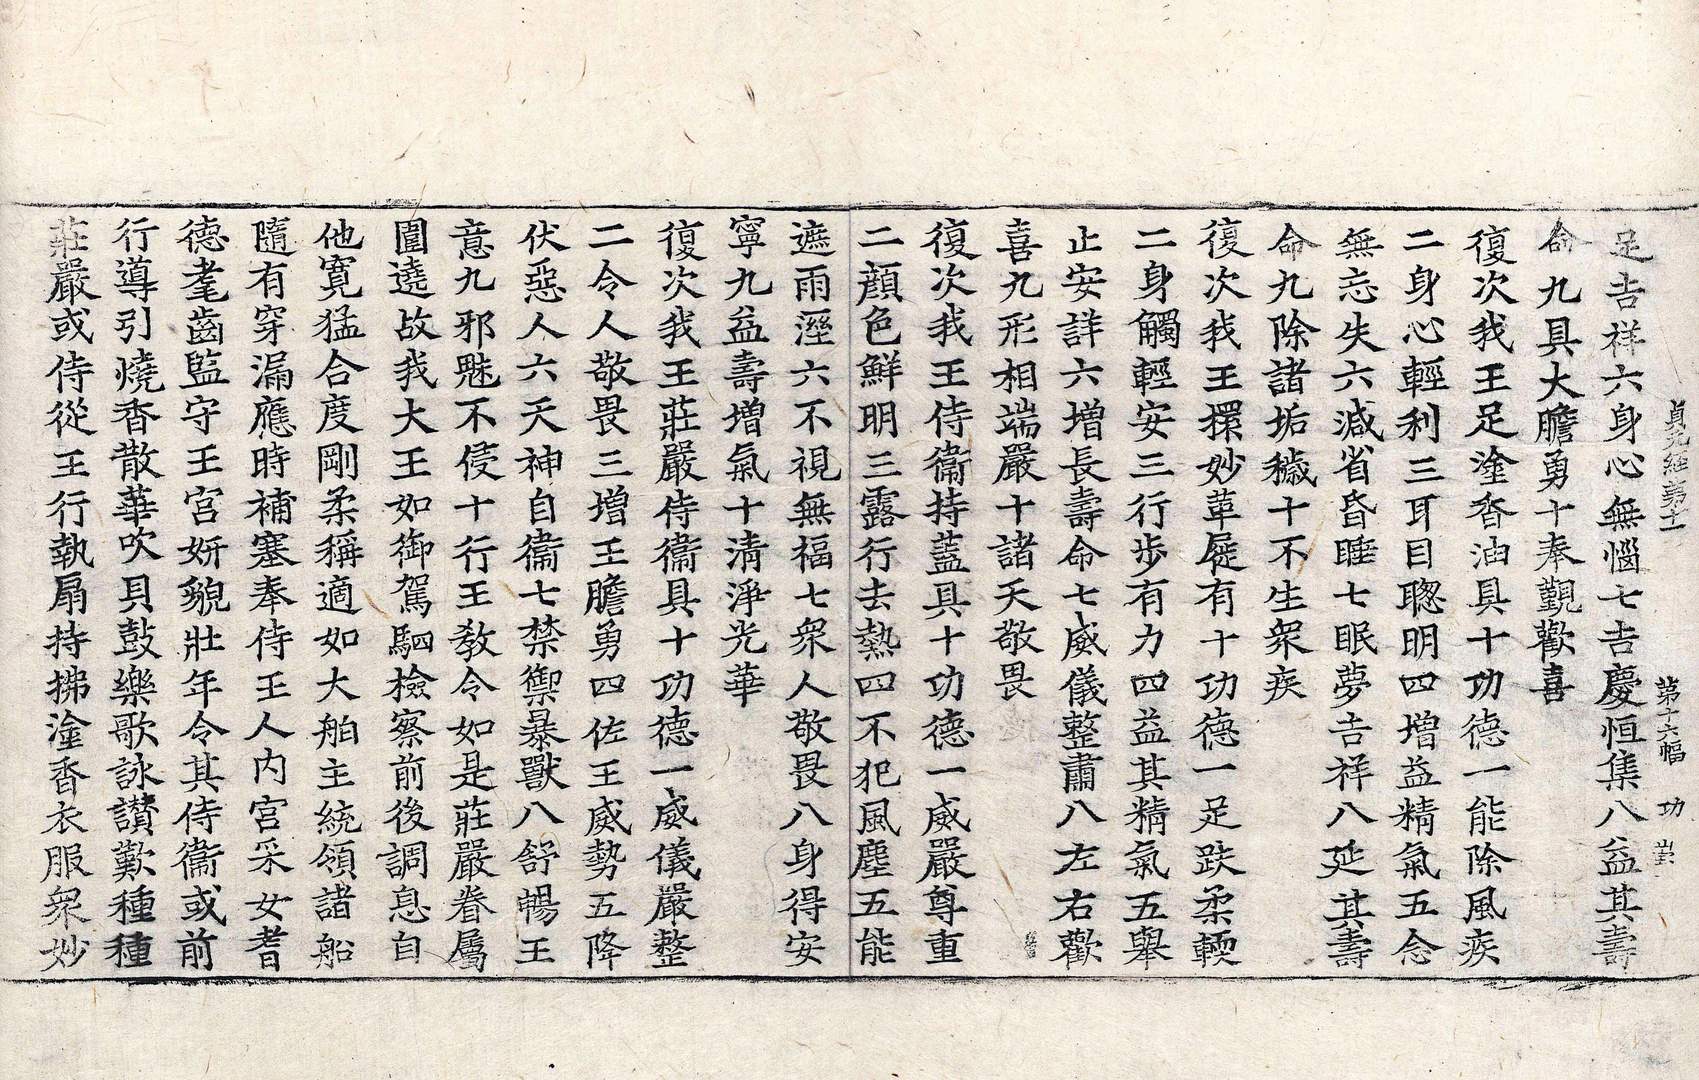 貞元經第十一 第十六幅 功
足吉祥六身心無惱七吉慶恒集八益其壽
命九具大膽勇十奉覲歡喜
復次我王足塗香油具十功德一能除風疾
二身心輕利三耳目聰明四增益精氣五念
無忘失六減省昏睡七眠夢吉祥八延其壽
命九除諸垢穢十不生衆疾
復次我王擐妙革屣有十功德一足趺柔輭
二身觸輕安三行步有力四益其精氣五舉
止安詳六增長壽命七威儀整肅八左右歡
喜九形相端嚴十諸天敬畏
復次我王侍衞持蓋具十功德一威嚴尊重
二顏色鮮明三露行去熱四不犯風塵五能
遮雨溼六不視無福七衆人敬畏八身得安
寧九益壽增氣十清淨光華
復次我王莊嚴侍衞具十功德一威儀嚴整
二令人敬畏三增王膽勇四佐王威勢五降
伏惡人六天神自衞七禁禦暴獸八舒暢王
意九邪魅不侵十行王教令如是莊嚴眷屬
圍遶故我大王如御駕駟檢察前後調息自
他寬猛合度剛柔稱適如大舶主統領諸船
隨有穿漏應時補塞奉侍王人內宮采女耆
德耄齒監守王宮妍貌壯年令其侍衞或前
行導引燒香散華吹貝鼓樂歌詠讚歎種種
莊嚴或侍從王行執扇持拂塗香衣服衆妙